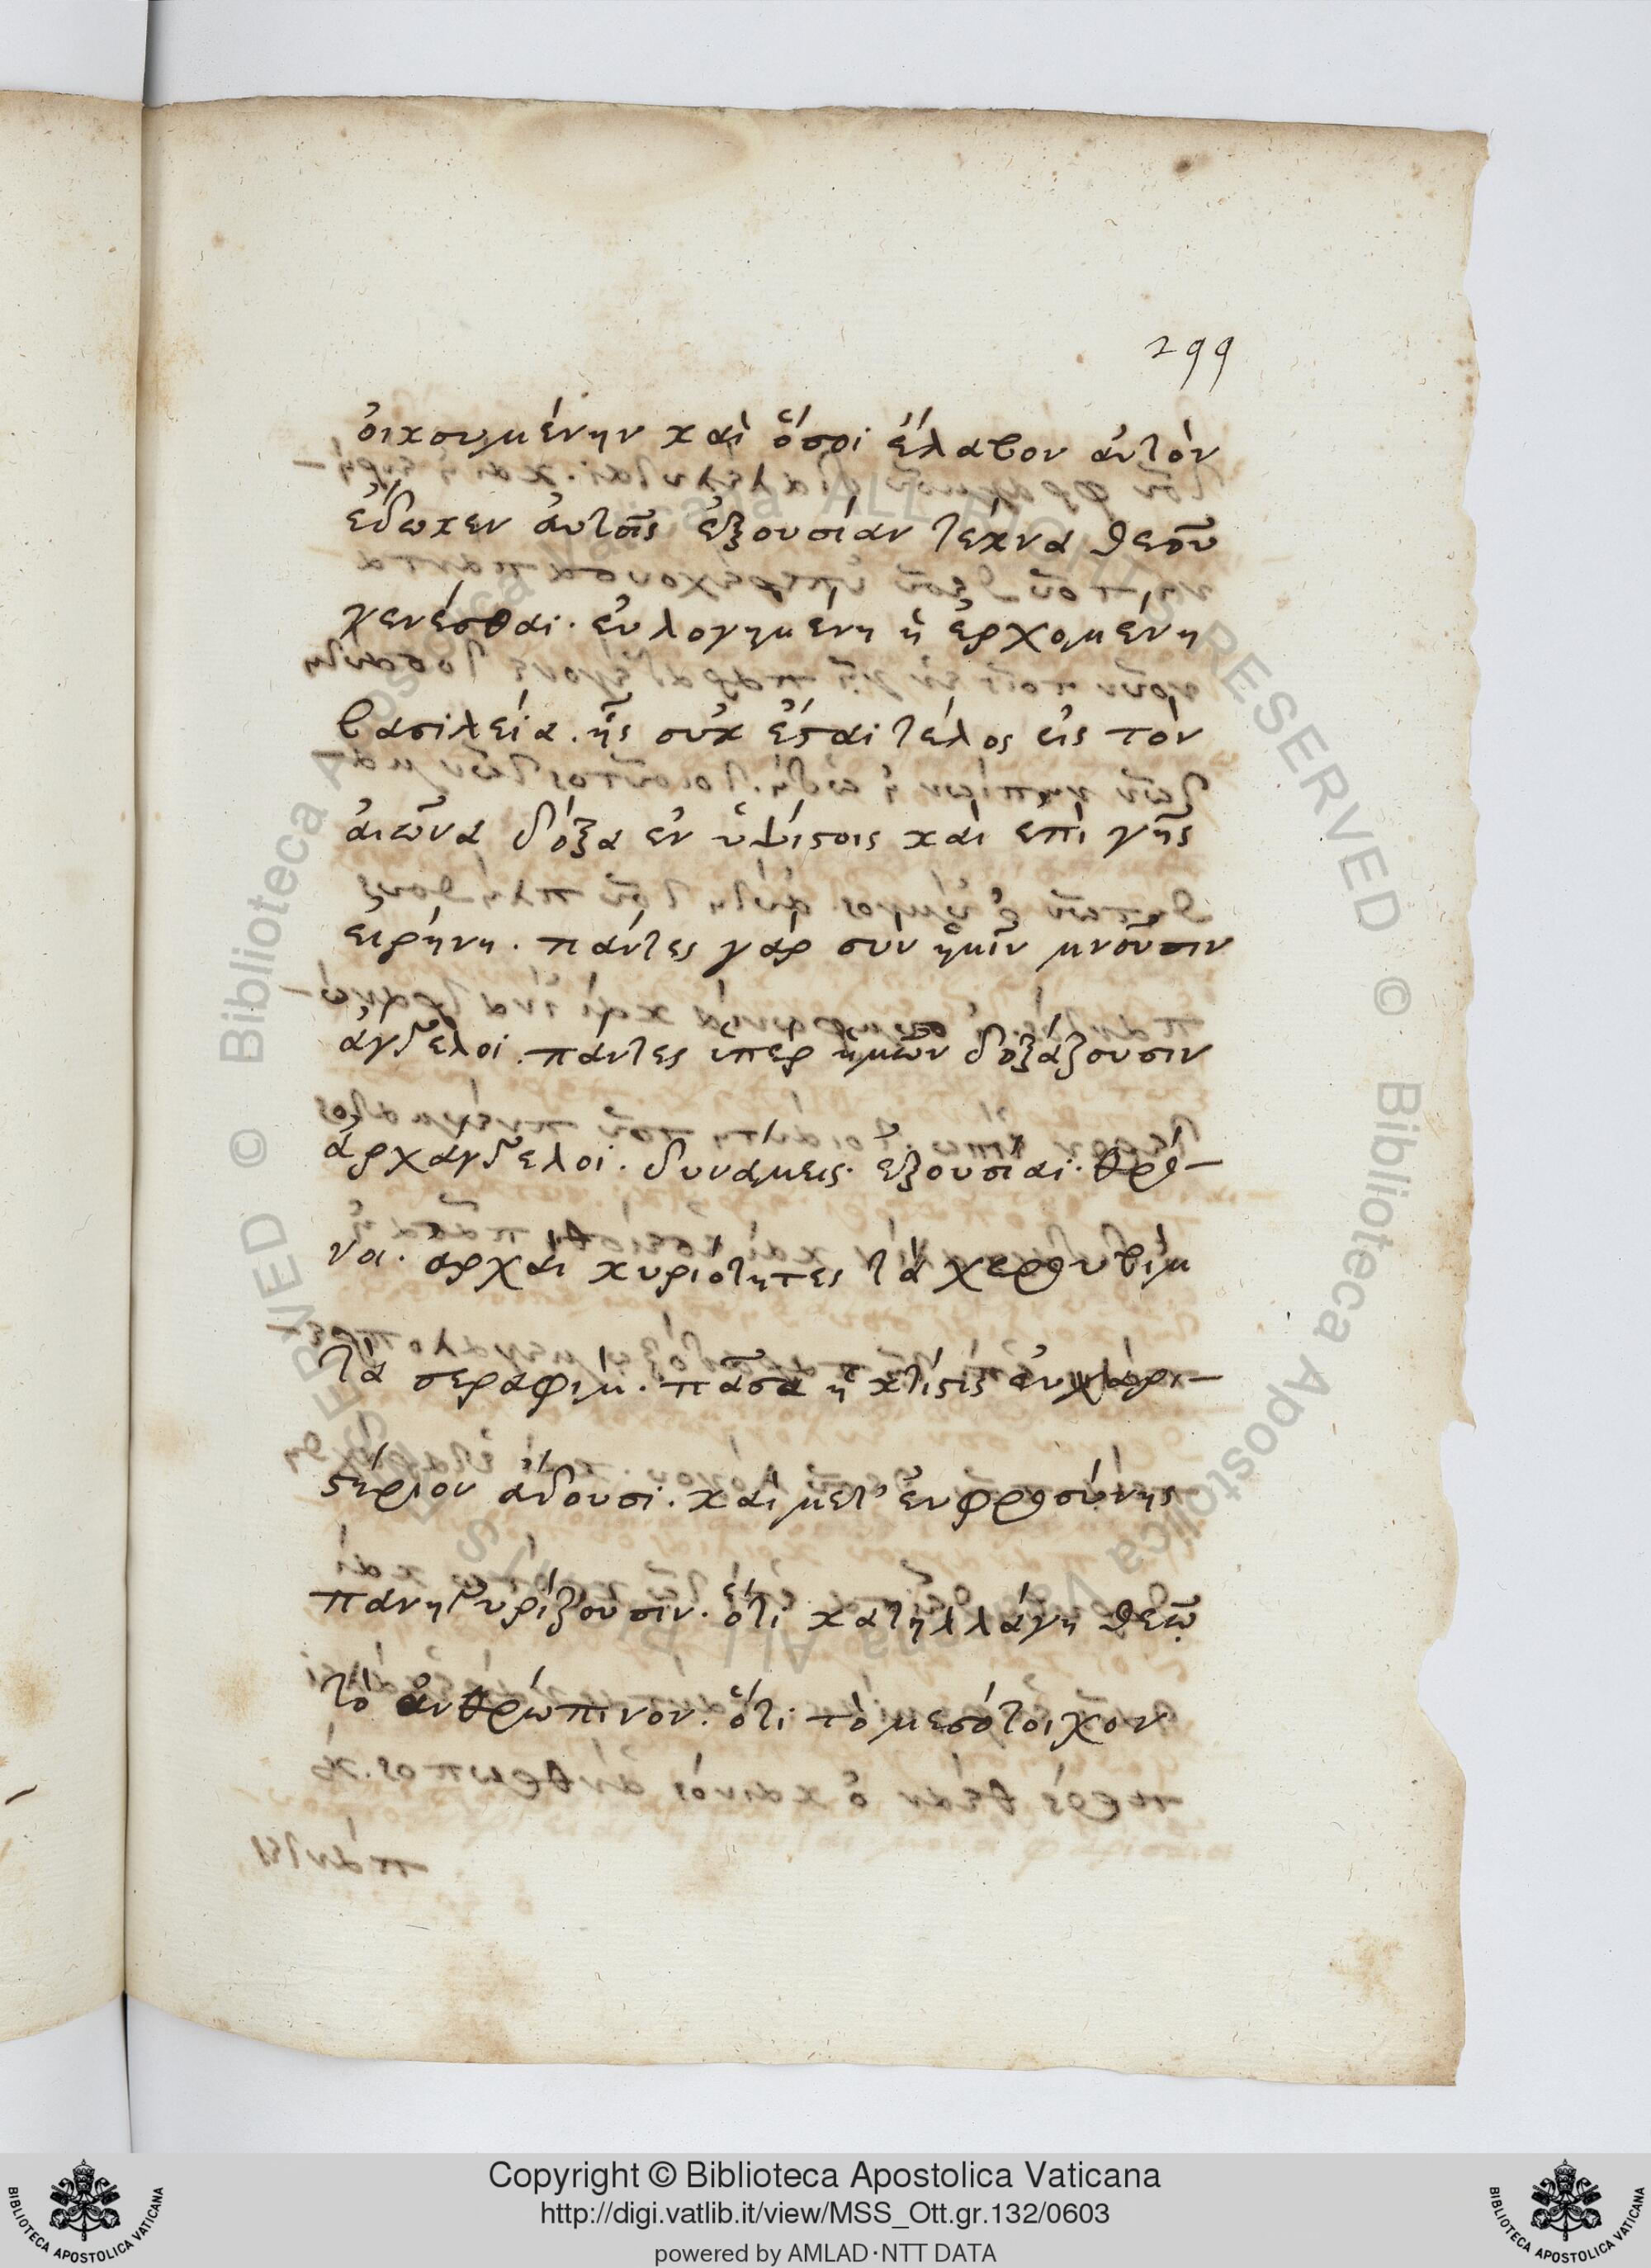 299
οἰκουμένην καὶ ὅσοι ἔλαβον ἀυτὸν
ἔδωκεν ἀυτοῖς ἐξουσίαν τέκνα θεοῦ
γενέσθαι· ἐυλογημένη ἡ ἐρχομένη
βασιλεία. ἧς οὐκ ἔσται τέλος εἰς τὸν
ἀιῶνα δόξα ἐν ὑψίστοις καὶ ἐπὶ γῆς
εἰρήνη. πάντες γὰρ σὺν ἡμῖν μνοῦσιν
ἄγγελοι. πάντες ὑπὲρ ἡμῶν δοξάζουσιν
ἀρχάγγελοι. δυνάμεις. ἐξουσίαι. θρό-
νοι. ἀρχάι κυριότητες τὰ χερουβίμ
τὰ σεραφίμ. πᾶσα ἡ κτίσις ἐυχαρι-
στήριον ἄδουσι. καὶ μετ' ἐυφροσύνης
πανηγυρίζουσιν. ὅτι κατηλλάγη θεῶ
τὸ ἀνθρώπινον. ὅτι τὸ μεσότοιχον
© Biblioteca Apostolica Vaticana ALL RIGHTS RESERVED
© Biblioteca Apostolica Vaticana ALL RIGHTS RESERVED
BIBLIOTECA APOSTOLICA VATICANA
Copyright © Biblioteca Apostolica Vaticana
http://digi.vatlib.it/view/MSS_Ott.gr.132/0603
powered by AMLAD·NTT DATA
BIBLIOTECA APOSTOLICA VATICANA